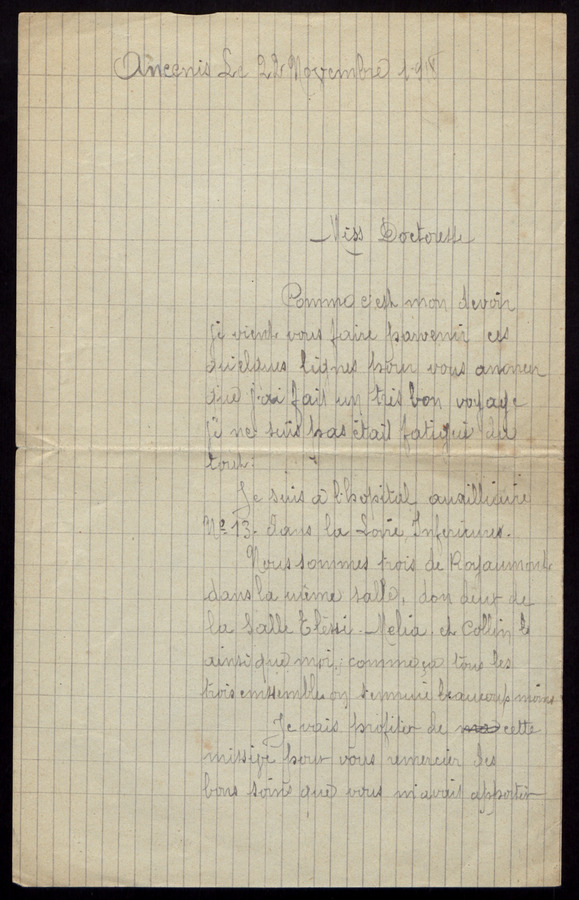 Ancenis Le 22 Novembre 191
Miss Doctoresse
Comme c'est mon devoir
je vient vous faire parvenir ces
quelques lignes pour vous anoncer
que j'ai fait un très bon voyage
je ne suis pas était fatigué du
tout.
Je suis à l'hopital auxilliaire
No 13. dans la Loire Inferieures.
Nous sommes trois de Royaumont
dans la même salle, don deux de
la Salle Elessi. Melia. et Collin le
ainsi que moi, comme ça tous les
trois emssemble on s'ennuie beaucoup moins
Je vais profiter de cette
missige pour vous remercier des
bons soins que vous m'avait apporter